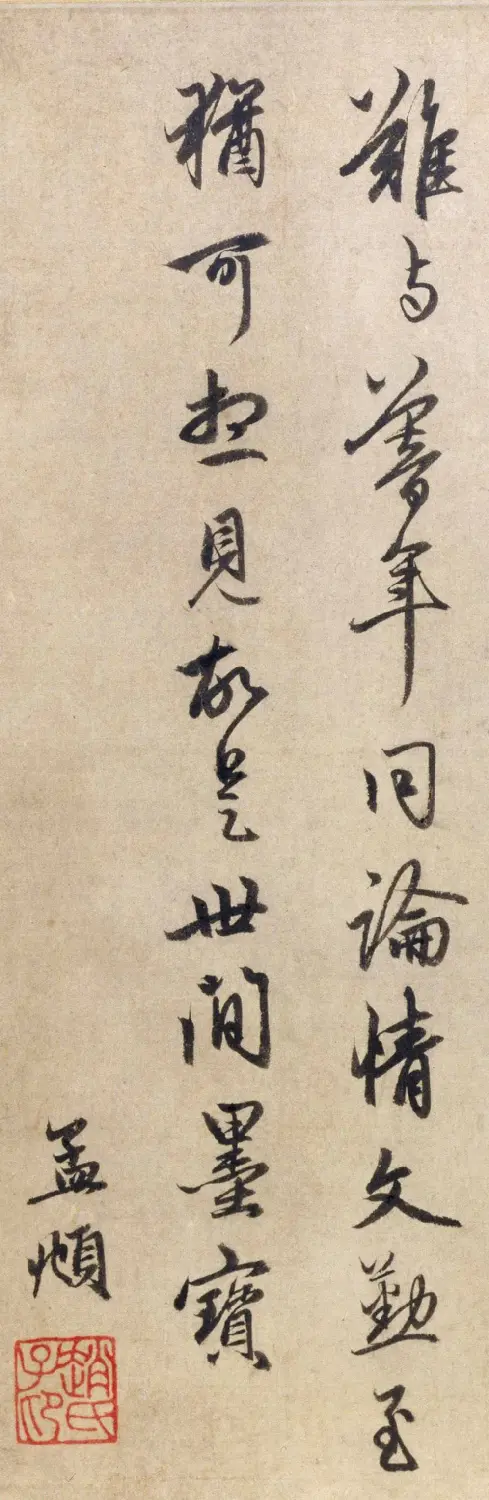 難与暮年同論情文勤至
猶可想見故是世間墨寶
孟頫
趙氏子印